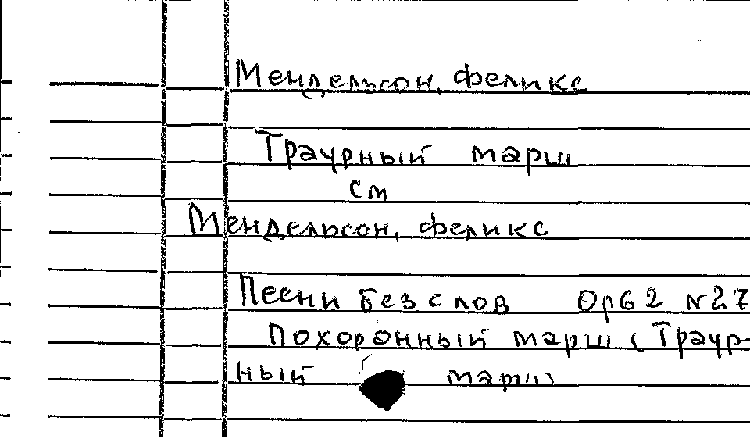 Мендельсон, Феликс
Траурный марш
см
Мендельсон, Феликс
Песни без слов Op62 N27
Похоронный марш (Траур-
ный марш)